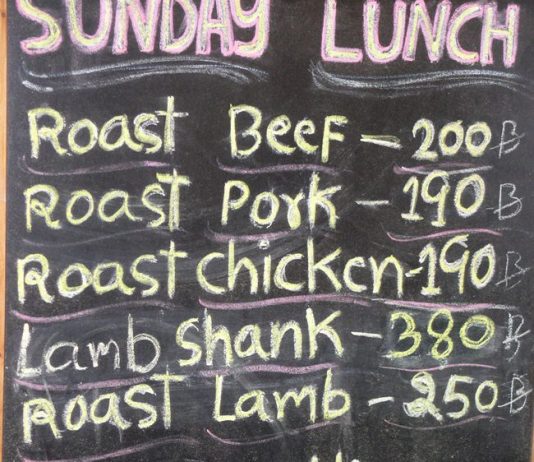 SUNDAY LUNCH
Roast Beef - 200 ฿
Roast Pork - 190 ฿
Roast chicken - 190 ฿
Lamb Shank - 380 ฿
Roast Lamb - 250 ฿